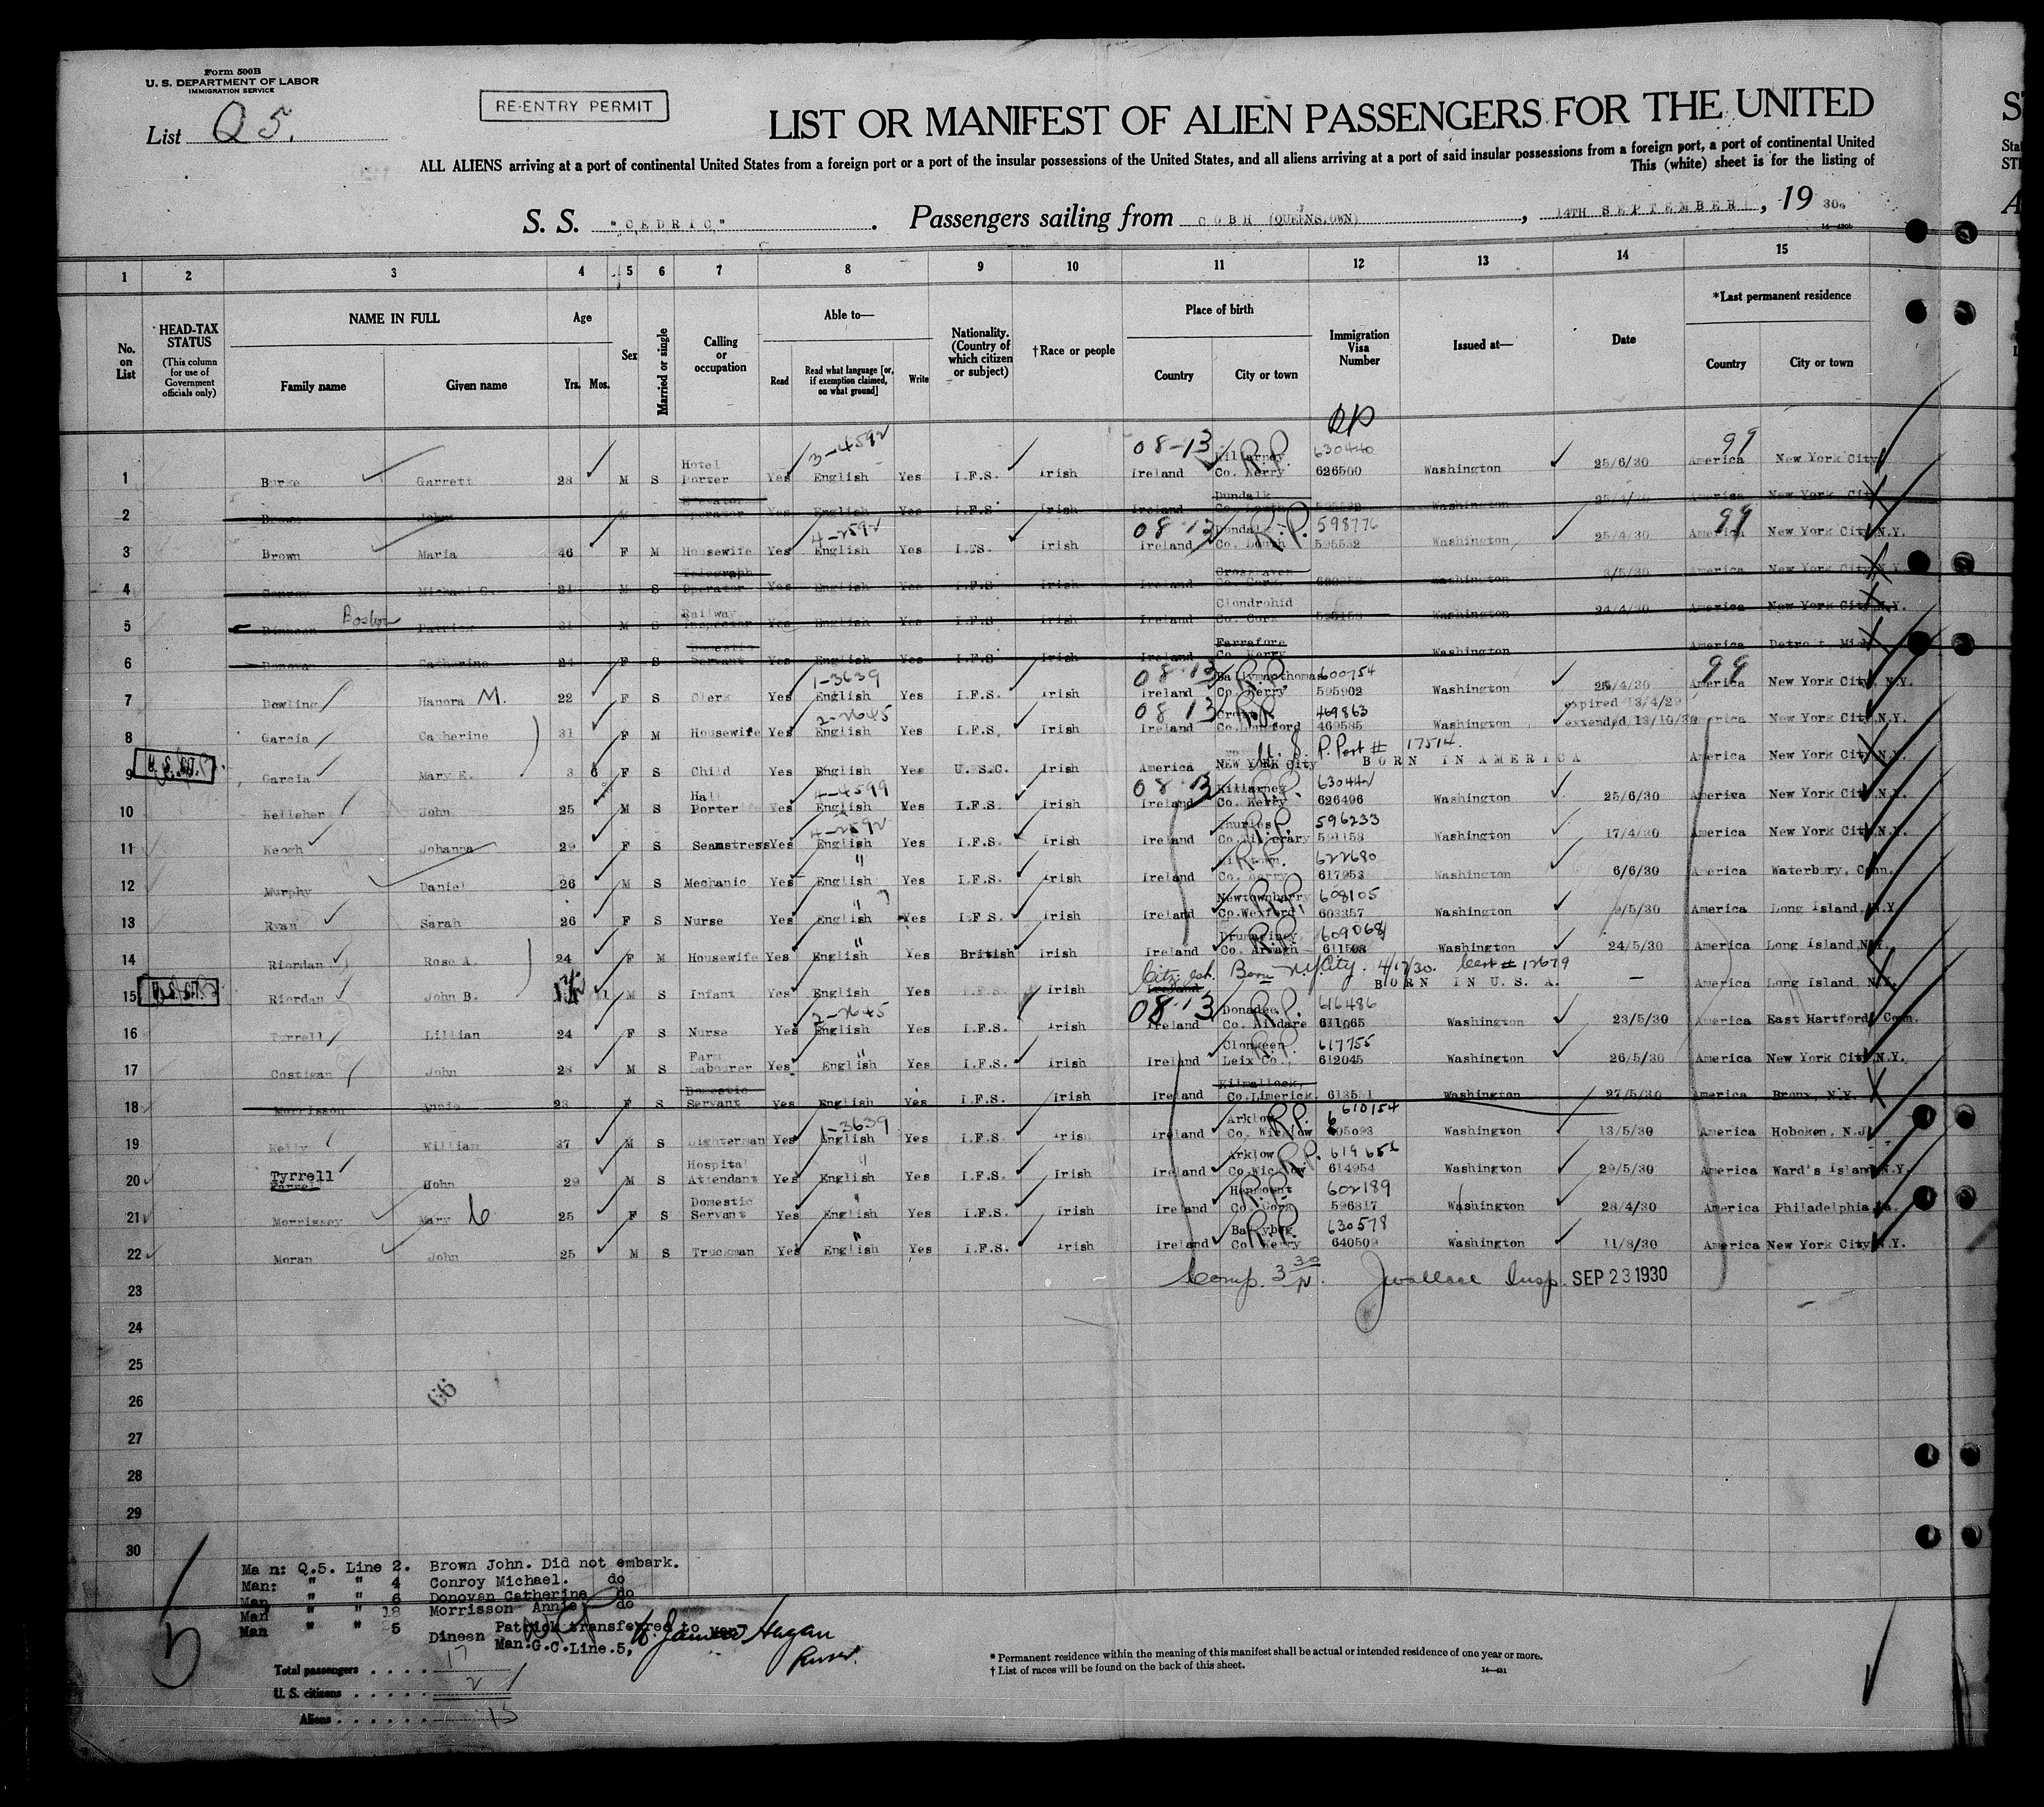 Form 500B
U. S. DEPARTMENT OF LABOR
IMMIGRATION SERVICE
List Q 5.
RE-ENTRY PERMIT
LIST OR MANIFEST OF ALIEN PASSENGERS FOR THE UNITED
ALL ALIENS arriving at a port of continental United States from a foreign port or a port of the insular possessions of the United States, and all aliens arriving at a port of said insular possessions from a foreign port, a port of continental United
This (white) sheet is for the listing of
S. S. "CEDRIC". Passengers sailing from COBH (QUEENS.OWN), 14TH SEPTEMBER, 19 30.
1 2 3 4 5 6 7 8 9 10 11 12 13 14 15
No. on List
HEAD-TAX STATUS
(This column for use of Government officials only)
NAME IN FULL
Family name Given name
Age
Yrs. Mos.
Sex
Married or single
Calling or occupation
Able to—
Read
Read what language [or, if exemption claimed, on what ground]
Write
Nationality. (Country of which citizen or subject)
†Race or people
Place of birth
Country City or town
Immigration Visa Number
Issued at—
Date
*Last permanent residence
Country City or town
3-4592 08-13 R.P. 630440 99
1 Burke Garrett 28 M S Hotel Porter Yes English Yes I.F.S. Irish Ireland Killarney Co. Kerry 626500 Washington 25/6/30 America New York City
2 Brown John M Operator Yes English Yes I.F.S Irish Ireland Dundalk Co. Louth Washington 25/4/30 America New York City
4-2592 08-13 R.P. 598776 99
3 Brown Maria 46 F M Housewife Yes English Yes I.FS. Irish Ireland Dundalk Co. Louth 595532 Washington 25/4/30 America New York City N.Y.
4 Conroy Michael C. 21 M S Telegraph Operator Yes English Yes I.F.S Irish Ireland Crosshaven Co. Cork Washington 3/5/30 America New York City N.Y.
Boston
5 Dinneen Patrick 31 M S Railway Inspector Yes English Yes I.F.S Irish Ireland Clondrohid Co. Cork Washington 24/4/30 America New York City N.Y.
6 Donovan Catherine 24 F S Domestic Servant Yes English Yes I.F.S Irish Ireland Farrafore Co. Kerry Washington America Detroit, Mich
1-3639 08-13 R.P. 600754 99
7 Dowling Hanora M. 22 F S Clerk Yes English Yes I.F.S. Irish Ireland Ballymacthomas Co. Kerry 595902 Washington 25/4/30 America New York City, N.Y.
2-2645 08 13 R.P. 469863 expired 13/4/29
8 Garcia Catherine 31 F M Housewife Yes English Yes I.F.S. Irish Ireland Co. Longford 469585 Washington extended,13/10/30 America New York City N.Y.
U. S. P. Port # 17514.
9 Garcia Mary E. 3 6 F S Child Yes English Yes U.S.C. Irish America NEW YORK City BORN IN AMERICA America New York City N.Y.
4-4599 08-13 R.P. 630442
10 Kelleher John 25 M S Hall Porter Yes English Yes I.F.S. Irish Ireland Killarney Co. Kerry 626496 Washington 25/6/30 America New York City N.Y.
4-2592 R.P. 596233
11 Keogh Johanna 29 F S Seamstress Yes English Yes I.F.S. Irish Ireland Thurles Co.Tipperary 591153 Washington 17/4/30 America New York City N.Y.
" R.P. 622680
12 Murphy Daniel 26 M S Mechanic Yes English Yes I.F.S. Irish Ireland Co. Kerry 617953 Washington 6/6/30 America Waterbury, Conn.
" R.P. 608105
13 Ryan Sarah 26 F S Nurse Yes English Yes I.F.S. Irish Ireland Newtownbarry Co.Wexford 603357 Washington /5/30 America Long Island, N.Y.
" R.P. 609068
14 Riordan Rose A. 24 F M Housewife Yes English Yes British Irish Ireland Co. Armagh 611503 Washington 24/5/30 America Long Island, N.Y.
Citz. est. Born N.Y. City. 4/17/30. Cert # 12679
15 Riordan John B. 11 M S Infant Yes English Yes I.F.S. Irish Ireland BORN IN U. S. A. — America Long Island, N.Y.
2-2645 08-13 R.P. 616486
16 Tyrrell Lillian 24 F S Nurse Yes English Yes I.F.S. Irish Ireland Donadea Co. Kildare 611065 Washington 23/5/30 America East Hartford, Conn.
" R.P. 617755
17 Costigan John 28 M S Farm Labourer Yes English Yes I.F.S. Irish Ireland Clonkeen Leix Co., 612045 Washington 26/5/30 America New York City N.Y.
18 Morrisson Annie 23 F S Domestic Servant Yes English Yes I.F.S. Irish Ireland Kilmallock, Co.Limerick 613551 Washington 27/5/30 America Bronx, N.Y.
1-3639 R.P. 610154
19 Kelly William 37 M S Lighterman Yes English Yes I.F.S Irish Ireland Arklow Co. Wicklow 605093 Washington 13/5/30 America Hoboken, N.J.
" R.P. 619656
20 Tyrrell Farrell John 29 M S Hospital Attendant Yes English Yes I.F.S. Irish Ireland Arklow Co.Wicklow 614954 Washington 29/5/30 America Ward's Island N.Y.
" R.P. 602189
21 Morrissey Mary C 25 F S Domestic Servant Yes English Yes I.F.S. Irish Ireland Co. Cork 596317 Washington 28/4/30 America Philadelphia Pa.
" R.P. 630578
22 Moran John 25 M S Truckman Yes English Yes I.F.S. Irish Ireland Ballybeg Co. Kerry 640509 Washington 11/8/30 America New York City N.Y.
Comp. 3 30 J Wallace Insp. SEP 23 1930
23
24
25
26
66
27
28
29
30
Man: Q.5. Line 2. Brown John. Did not embark.
Man: " " 4 Conroy Michael. do
Man " " 6 Donovan Catherine do
Man " " 18 Morrisson Annie do
Man " " 5 Dineen Patrick transferred to
Man.G.C.Line.5,
James Hagan
Purser.
Total passengers . . . . 17
U. S. citizens . . . . . 2
Aliens . . . . . . 15
* Permanent residence within the meaning of this manifest shall be actual or intended residence of one year or more.
† List of races will be found on the back of this sheet.